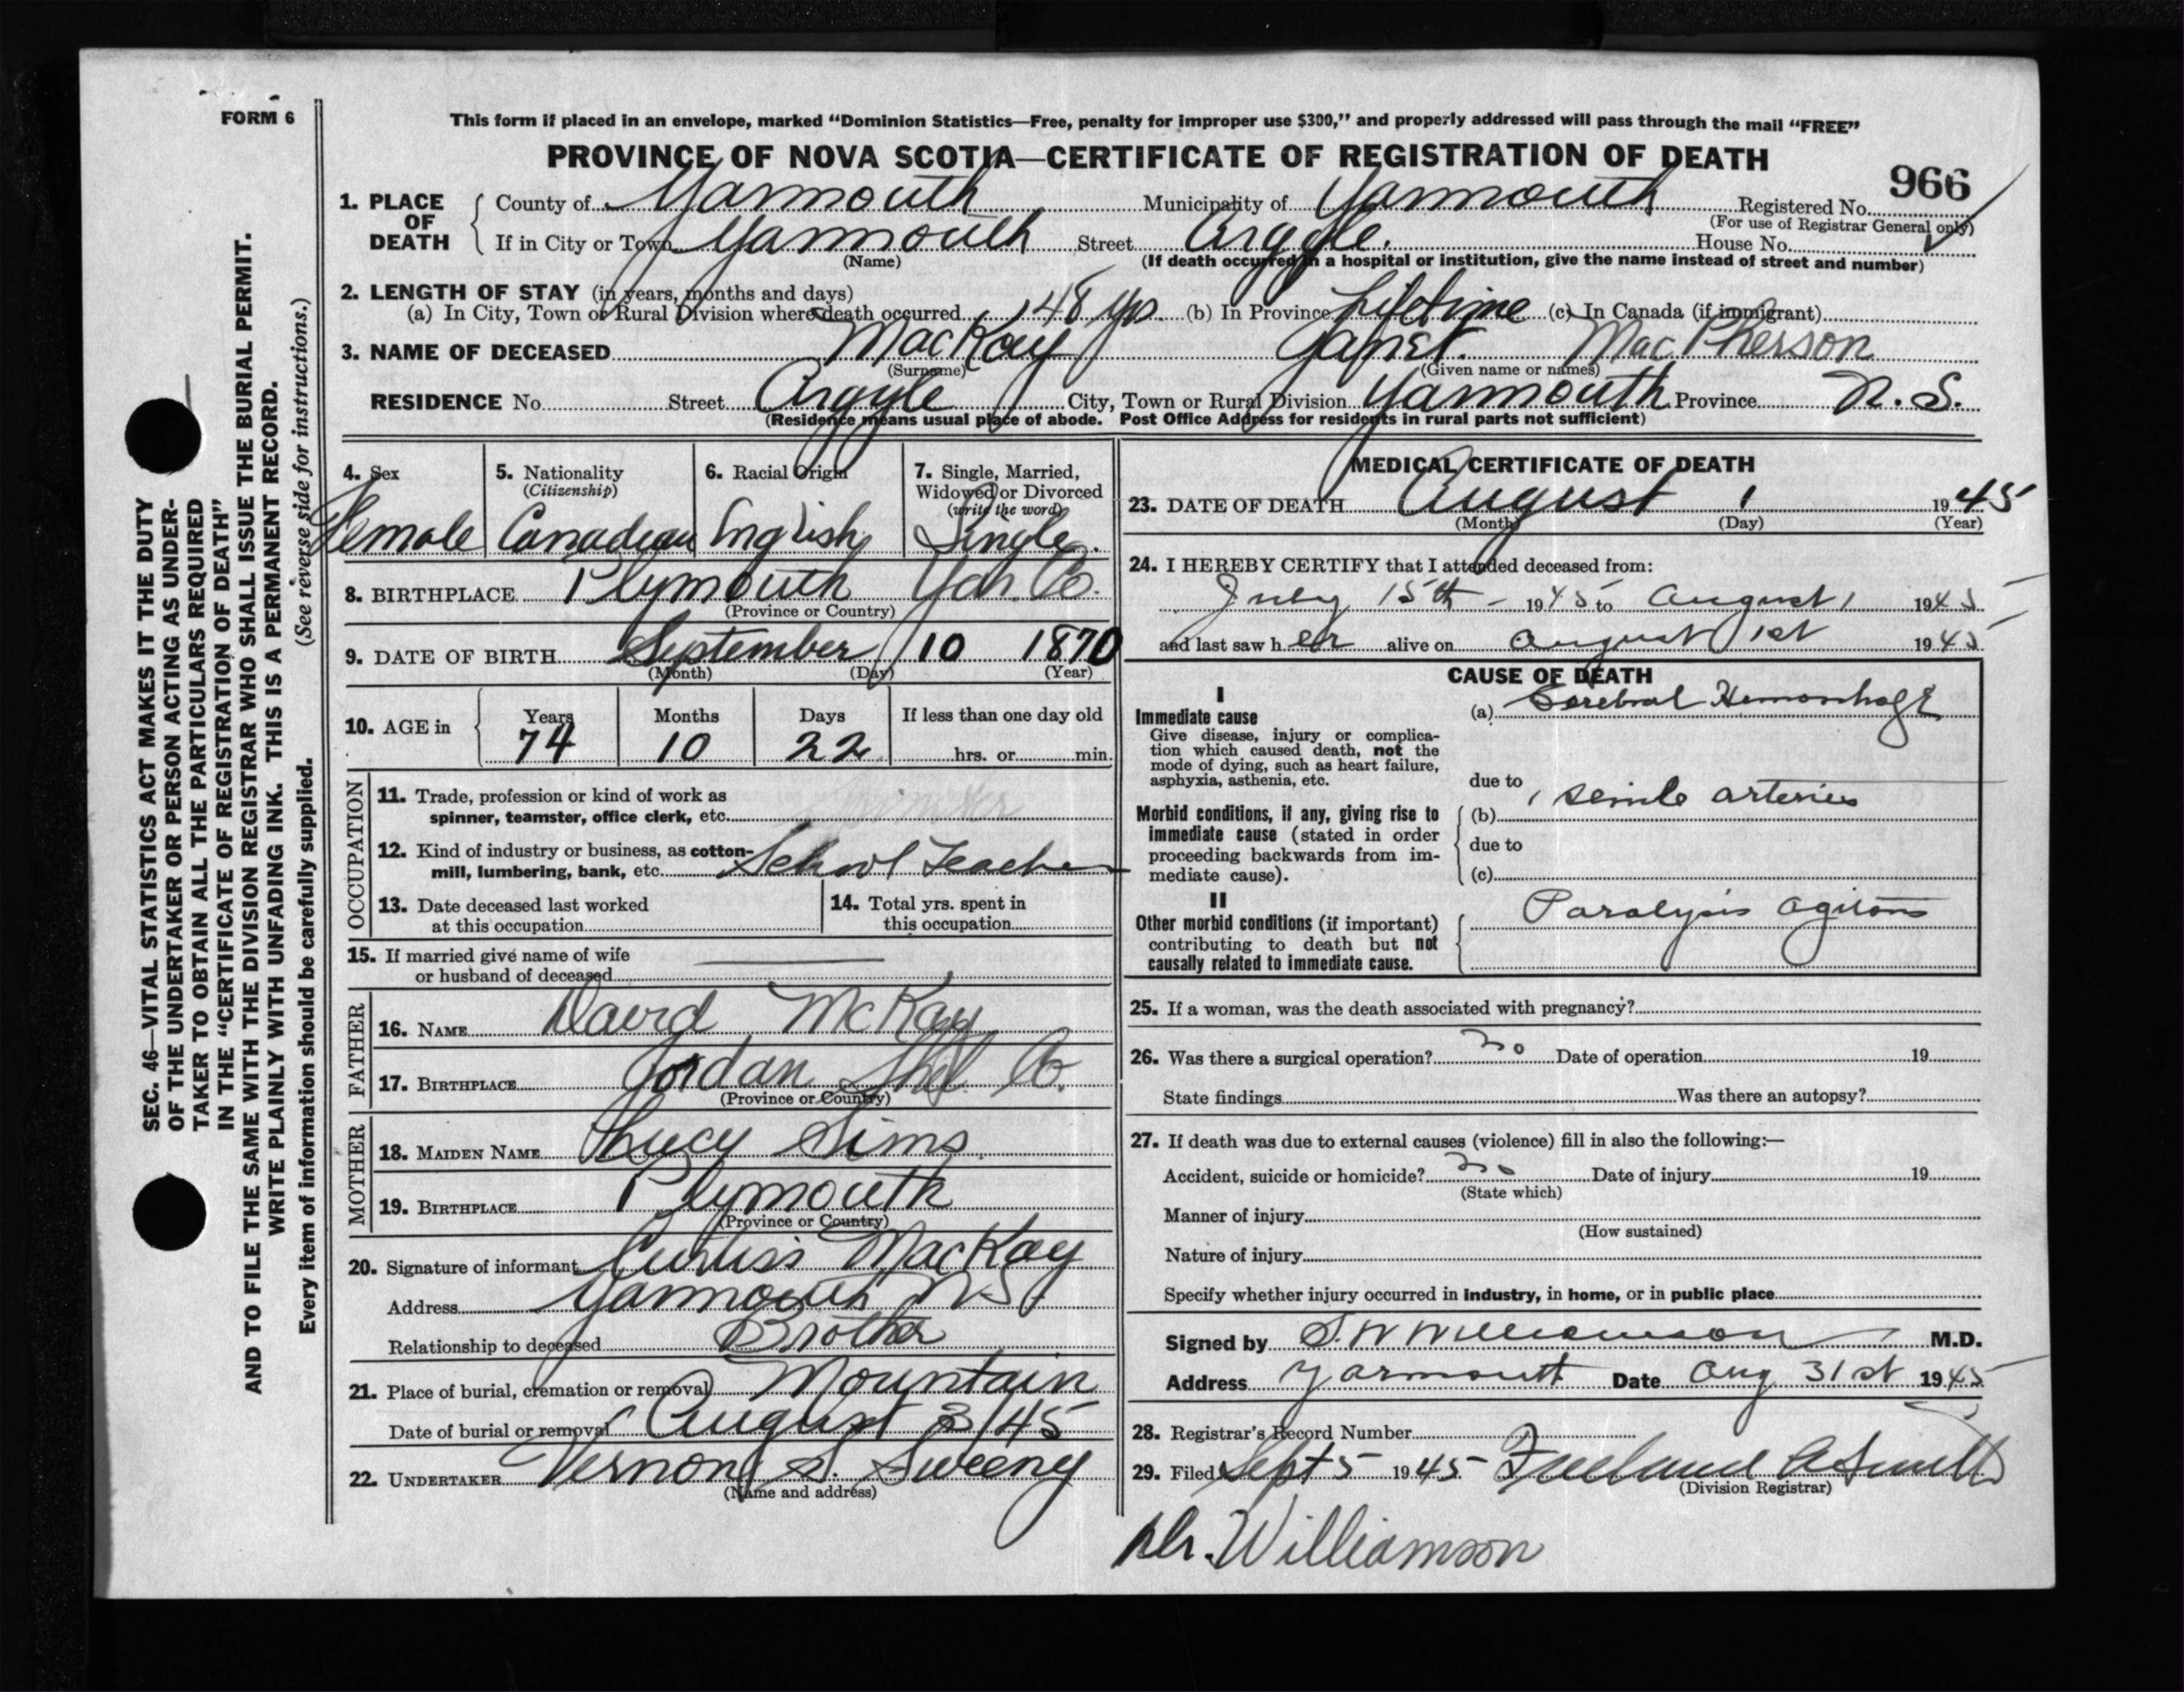 FORM 6
This form if placed in an envelope, marked “Dominion Statistics—Free, penalty for improper use $300,” and properly addressed will pass through the mail “FREE”
PROVINCE OF NOVA SCOTIA—CERTIFICATE OF REGISTRATION OF DEATH
966
1. PLACE OF DEATH County of Yarmouth Municipality of Yarmouth Registered No.
(For use of Registrar General only)
If in City or Town Yarmouth Street Argyle. House No.
(Name) (If death occurred in a hospital or institution, give the name instead of street and number)
2. LENGTH OF STAY (in years, months and days)
(a) In City, Town or Rural Division where death occurred 48 yrs (b) In Province Lifetime (c) In Canada (if immigrant)
3. NAME OF DECEASED MacKay Janet. MacPherson
(Surname) (Given name or names)
RESIDENCE No. Street Argyle City, Town or Rural Division Yarmouth Province N.S.
(Residence means usual place of abode. Post Office Address for residents in rural parts not sufficient)
4. Sex
Female
5. Nationality
(Citizenship)
Canadian
6. Racial Origin
English
7. Single, Married,
Widowed or Divorced
(write the word)
Single.
8. BIRTHPLACE Plymouth Yar. Co.
(Province or Country)
9. DATE OF BIRTH September 10 1870
(Month) (Day) (Year)
10. AGE in Years Months Days If less than one day old
74 10 22 hrs. or min.
OCCUPATION
11. Trade, profession or kind of work as
spinner, teamster, office clerk, etc.
12. Kind of industry or business, as cotton-
mill, lumbering, bank, etc. School Teacher
13. Date deceased last worked
at this occupation
14. Total yrs. spent in
this occupation
15. If married give name of wife
or husband of deceased
FATHER
16. NAME David McKay
17. BIRTHPLACE Jordan Shel. Co.
(Province or Country)
MOTHER
18. MAIDEN NAME Lucy Sims.
19. BIRTHPLACE Plymouth
(Province or Country)
20. Signature of informant Curtiss MacKay
Address Yarmouth NS
Relationship to deceased Brother
21. Place of burial, cremation or removal Mountain
Date of burial or removal August 3/45
22. UNDERTAKER Vernon S. Sweeny
(Name and address)
MEDICAL CERTIFICATE OF DEATH
23. DATE OF DEATH August 1 1945
(Month) (Day) (Year)
24. I HEREBY CERTIFY that I attended deceased from:
July 15th 1945 to August 1 1945
and last saw her alive on August 1st 1945
CAUSE OF DEATH
I
Immediate cause
Give disease, injury or complica-
tion which caused death, not the
mode of dying, such as heart failure,
asphyxia, asthenia, etc.
(a) Cerebral Hemorrhage
due to
Morbid conditions, if any, giving rise to
immediate cause (stated in order
proceeding backwards from im-
mediate cause).
(b) senile arteries
due to
(c)
II
Other morbid conditions (if important)
contributing to death but not
causally related to immediate cause.
Paralysis agitans
25. If a woman, was the death associated with pregnancy?
26. Was there a surgical operation? no Date of operation 19
State findings Was there an autopsy?
27. If death was due to external causes (violence) fill in also the following:—
Accident, suicide or homicide? no Date of injury 19
(State which)
Manner of injury
(How sustained)
Nature of injury
Specify whether injury occurred in industry, in home, or in public place
Signed by S.W Williamson M.D.
Address Yarmouth Date Aug 31st 1945
28. Registrar's Record Number
29. Filed Sept 5 1945 Freeland A Smith
(Division Registrar)
Dr. Williamson
SEC. 46—VITAL STATISTICS ACT MAKES IT THE DUTY
OF THE UNDERTAKER OR PERSON ACTING AS UNDER-
TAKER TO OBTAIN ALL THE PARTICULARS REQUIRED
IN THE “CERTIFICATE OF REGISTRATION OF DEATH”
AND TO FILE THE SAME WITH THE DIVISION REGISTRAR WHO SHALL ISSUE THE BURIAL PERMIT.
WRITE PLAINLY WITH UNFADING INK. THIS IS A PERMANENT RECORD.
Every item of information should be carefully supplied. (See reverse side for instructions.)